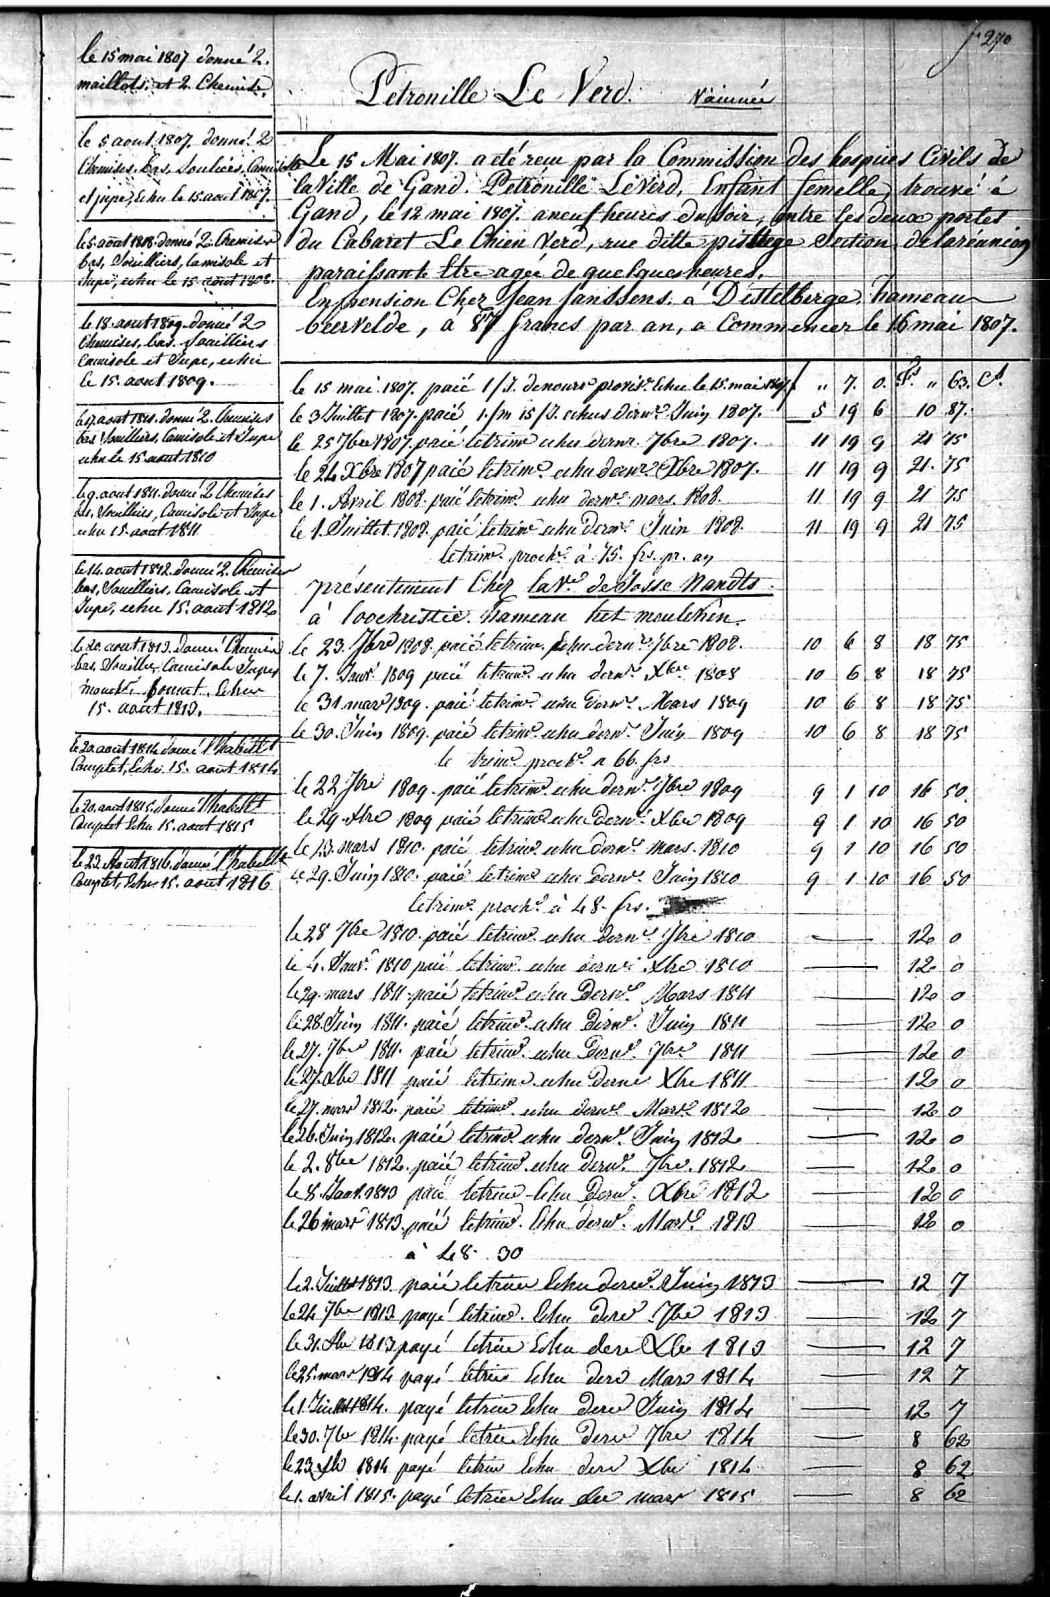 fo 270
le 15 mai 1807 donné 2.
maillots. et 2 Chemise.
le 5 aout 1807. donné. 2
Chemises, bas, Souliers, Camisole
et jupe, Echu le 15. aout 1807.
le 5. août 1808. donné 2. Chemises
bas, Souilliers, Camisole et
Jupe, echu le 15. août 1808.
le 18. aout 1809. donné 2
Chemises, bas. Souilliers
Camisole et Jupe, echu
le 15. aout 1809.
aout 1810. donné 2. Chemises
bas Souilliers, Camisole et Jupe
echu le 15. aout 1810
le 9. aout 1811. donné 2 Chemises
bas, Souilliers, Camisole et Jupe
echu 15. aout 1811
le 14. aout 1812. donné 2. Chemises
bas, Souilliers, Camisole et
Jupe, echu 15. aout 1812
le 20 aout 1813. donné Chemise
bas, Souillie, Camisole Jupe
mouch. bonnet. Echu
15. août 1813.
le 20 août 1814 donné l'habillt
Complet, Echu 15. aout 1814
le 20. aout 1815. donné l'habillt
Complet Echu 15. aout 1815
le 23. Aout 1816. donné l'habille
Complet, Echu 15. aout 1816
Petronille Le Verd. Vaccinée
Le 15 Mai 1807. a été reçu par la Commission des hospices Civils de
la Ville de Gand. Petronille Le Verd, Enfant femelle, trouvé à
Gand, le 12 mai 1807. a neuf heures du soir, entre les deux portes
du Cabaret Le Chien Verd, rue ditte Section de la réunion
paraissante Etre agée de quelques heures.
En pension Chez Jean Janssens. à Destelberge. hameau
beervelde, à 87 francs par an, a Commencer le 16 mai 1807.
le 15 mai. 1807. paié 1/J. de nourr. provis.e Echu le 15. mai 1807 „ 7. 0. F. „ 63. C.
le 3 Juillet 1807. paié 1./m 15/J. echus dern.r Juin 1807. 5 19 6 10 87.
le 25 7bre 1807. paié le trim.e echu dernr. 7bre 1807. 11 19 9 21 75
le 24 Xbre 1807 paié le trim.e echu dern.r Xbre 1807. 11 19 9 21. 75
le 1. Avril 1808. paié le trim.e echu dern.r mars. 1808. 11 19 9 21 75
le 1. Juillet. 1808. paié le trim.e echu dern.r Juin 1808. 11 19 9 21 75
le trim.e proch.n à 75. frs. pr. an
présentement Chez la V.e de Josse
à Loochristie. hameau het
le 23. 7bre 1808. paié le trim.e Echu dern.r 7bre 1808. 10 6 8 18 75
le 7. Janv.r 1809 paié le trim.e echu dern.r Xbre 1808 10 6 8 18 75
le 31 mars 1809. paié le trim.e echu dern.r Mars 1809 10 6 8 18 75.
le 30. Juin 1809. paié le trim.e echu dern.r Juin 1809 10 6 8 18 75
le trim.e proch.n a 66. frs
le 22 7bre 1809. paié le trim.e echu dern.r 7bre 1809 9 1 10 16 50.
le 29. Xbre 1809 paié le trim.e echu dern.r Xbre 1809 9 1 10 16 50
le 23. mars 1810. paié le trim.e echu dern.r mars. 1810 9 1 10 16 50
le 29. Juin 1810. paié le trim.e echu dern.r Juin 1810 9 1 10 16 50
le trim.e proch.n à 48. frs.
le 28 7bre 1810. paié le trim.e echu dern.r 7bre 1810 — 12 0
le 4. Janv.r 1810 paié le trim.e echu dern.r Xbre 1810 — 12 0
le 29. mars 1811. paié le trim.e echu Dern.r Mars 1811 — 12 0
le 28. Juin 1811. paié le trim.e echu Dern.r Juin 1811 — 12 0
le 27. 7bre 1811. paié le trim.e echu Dern.r 7bre 1811 — 12 0
le 27. Xbre 1811 paié le trime echu derne Xbre 1811 — 12 0
le 27. mars 1812. paié le trim.e echu dern.r Mars 1812 — 12 0
le 26. Juin 1812. paié le trim.e echu dern.r Juin 1812 — 12 0
le 2. 8bre 1812. paié le trim.e echu Dern.r 7bre. 1812 — 12 0
le 8. Janv. 1813 paié le trime Echu Dern.r Xbre 1812 — 12 0
le 26 mars 1813. paié le trim.e Echu dern.r Mars 1813 12 0
à 48. 30
le 2. Juillet 1813 paié le trime Echu dern.r Juin 1813 — 12 7
le 24. 7bre 1813 payé le trime. Echu dere 7bre 1813 — 12 7
le 31. Xbre 1813 payé le trime Echu dere Xbre 1813 — 12 7
le 25. mars 1814 payé le trime Echu dere Mars 1814 — 12 7
le 1. Juillet 1814. payé le trime Echu dere Juin 1814 — 12 7
le 30. 7bre 1814. payé le trime Echu dere 7bre 1814 — 8 62
le 23 Xbre 1814 payé le trime Echu dere Xbre 1814 — 8 62
le 1. avril 1815. payé le trime Echu dere mars 1815 — 8 62